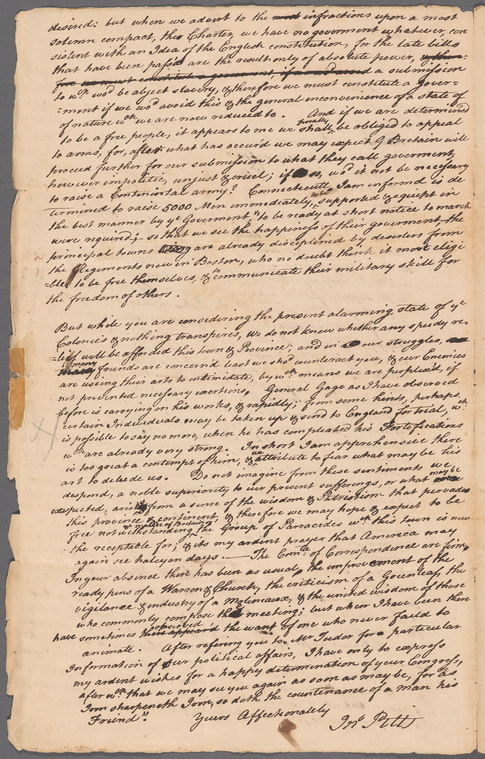 desired: but when we advert to the infractions upon a most
solemn compact, this Charter, we have no goverment whatever, con
sistent with an Idea of the English constitution, for the late bills
that have been pass'd are the result only of absolute power,
a submission
to wch. wo'd be abject slavery, & therefore we must constitute a Gover-
-ment if we wo'd avoid this & the general inconvenience of a state of
of nature wch. we are now reduced to. And if we are determined
to be a free people, it appears to me we shall finally be obliged to appeal
to arms, for, after what has occur'd we may expect G Bretain will
proceed further for our submission to what they call goverment,
however impolitic, unjust & cruel; if so, wo'd it not be necessary
to raise a Continental army? Connecticutt, I am informed is de
termened to raise 5000 Men immediately, to be supported & equipt in
the best manner by ye Goverment & to be ready at short notice to march
were required; so that we see the happeness of their goverment, the
principal towns are already disciplined by deserters from
the Regiments now in Boston, who no doubt think it more eligi
ble to be free themselves, & to communicate their military skill for
the freedom of others.
But while you are considering the present alarming state of ye
Colonies & nothing transpires, we do not know whether any speedy re-
lief will be afforded this town & Province; and in our struggles,
many friends are concern'd least we sho'd counteract you, & our Enemies
are useing their arts to intimidate, by wch. means we are perplexed, if
not prevented necessary exertions. General Gage as I have observed
before is carrying on his works, & rapidly; from some hints, perhaps,
certain Individuals may be taken up & send to England for trial, wch.
is possible to say no more, when he has compleated his Fortifications
wch. are already very strong. In short I am apprehensive there
is too great a contempt of him, & we attribute to fear what may be his
art to delude us. Do not imagine from these sentiments we
despond, a noble superiority to our present sufferings, or what may be
expected, arises from a sense of the wisdom & Patriotism that pervades
this province & continent, & therefore we may hope & expect to be
free notwithstanding the Group of Paracides wch. this town is now
the receptible for; & its my ardent prayer that America may
again see halcyon days. — The Comtte. of Correspondence are firm,
In your absence there has been as usual, the improvement of the
ready pens of a Warren & Church, the criticism of a Greenleaf, the
vigilance & industry of a Molineaux, & the united wisdom of those
who commonly compose the meeting; but when I have been there
have sometimes observed the want of one who never faild to
animate. After refering you to Mr Tudor for a particular
Information of our political affairs, I have only to express
my ardent wishes for a happy determination of your Congress,
after wch. that we may see you again as soon as may be, for as
Iron sharpeneth Iron, so doth the countenance of a man his
Friend".
Yours Affectionately
Jno. Pitts